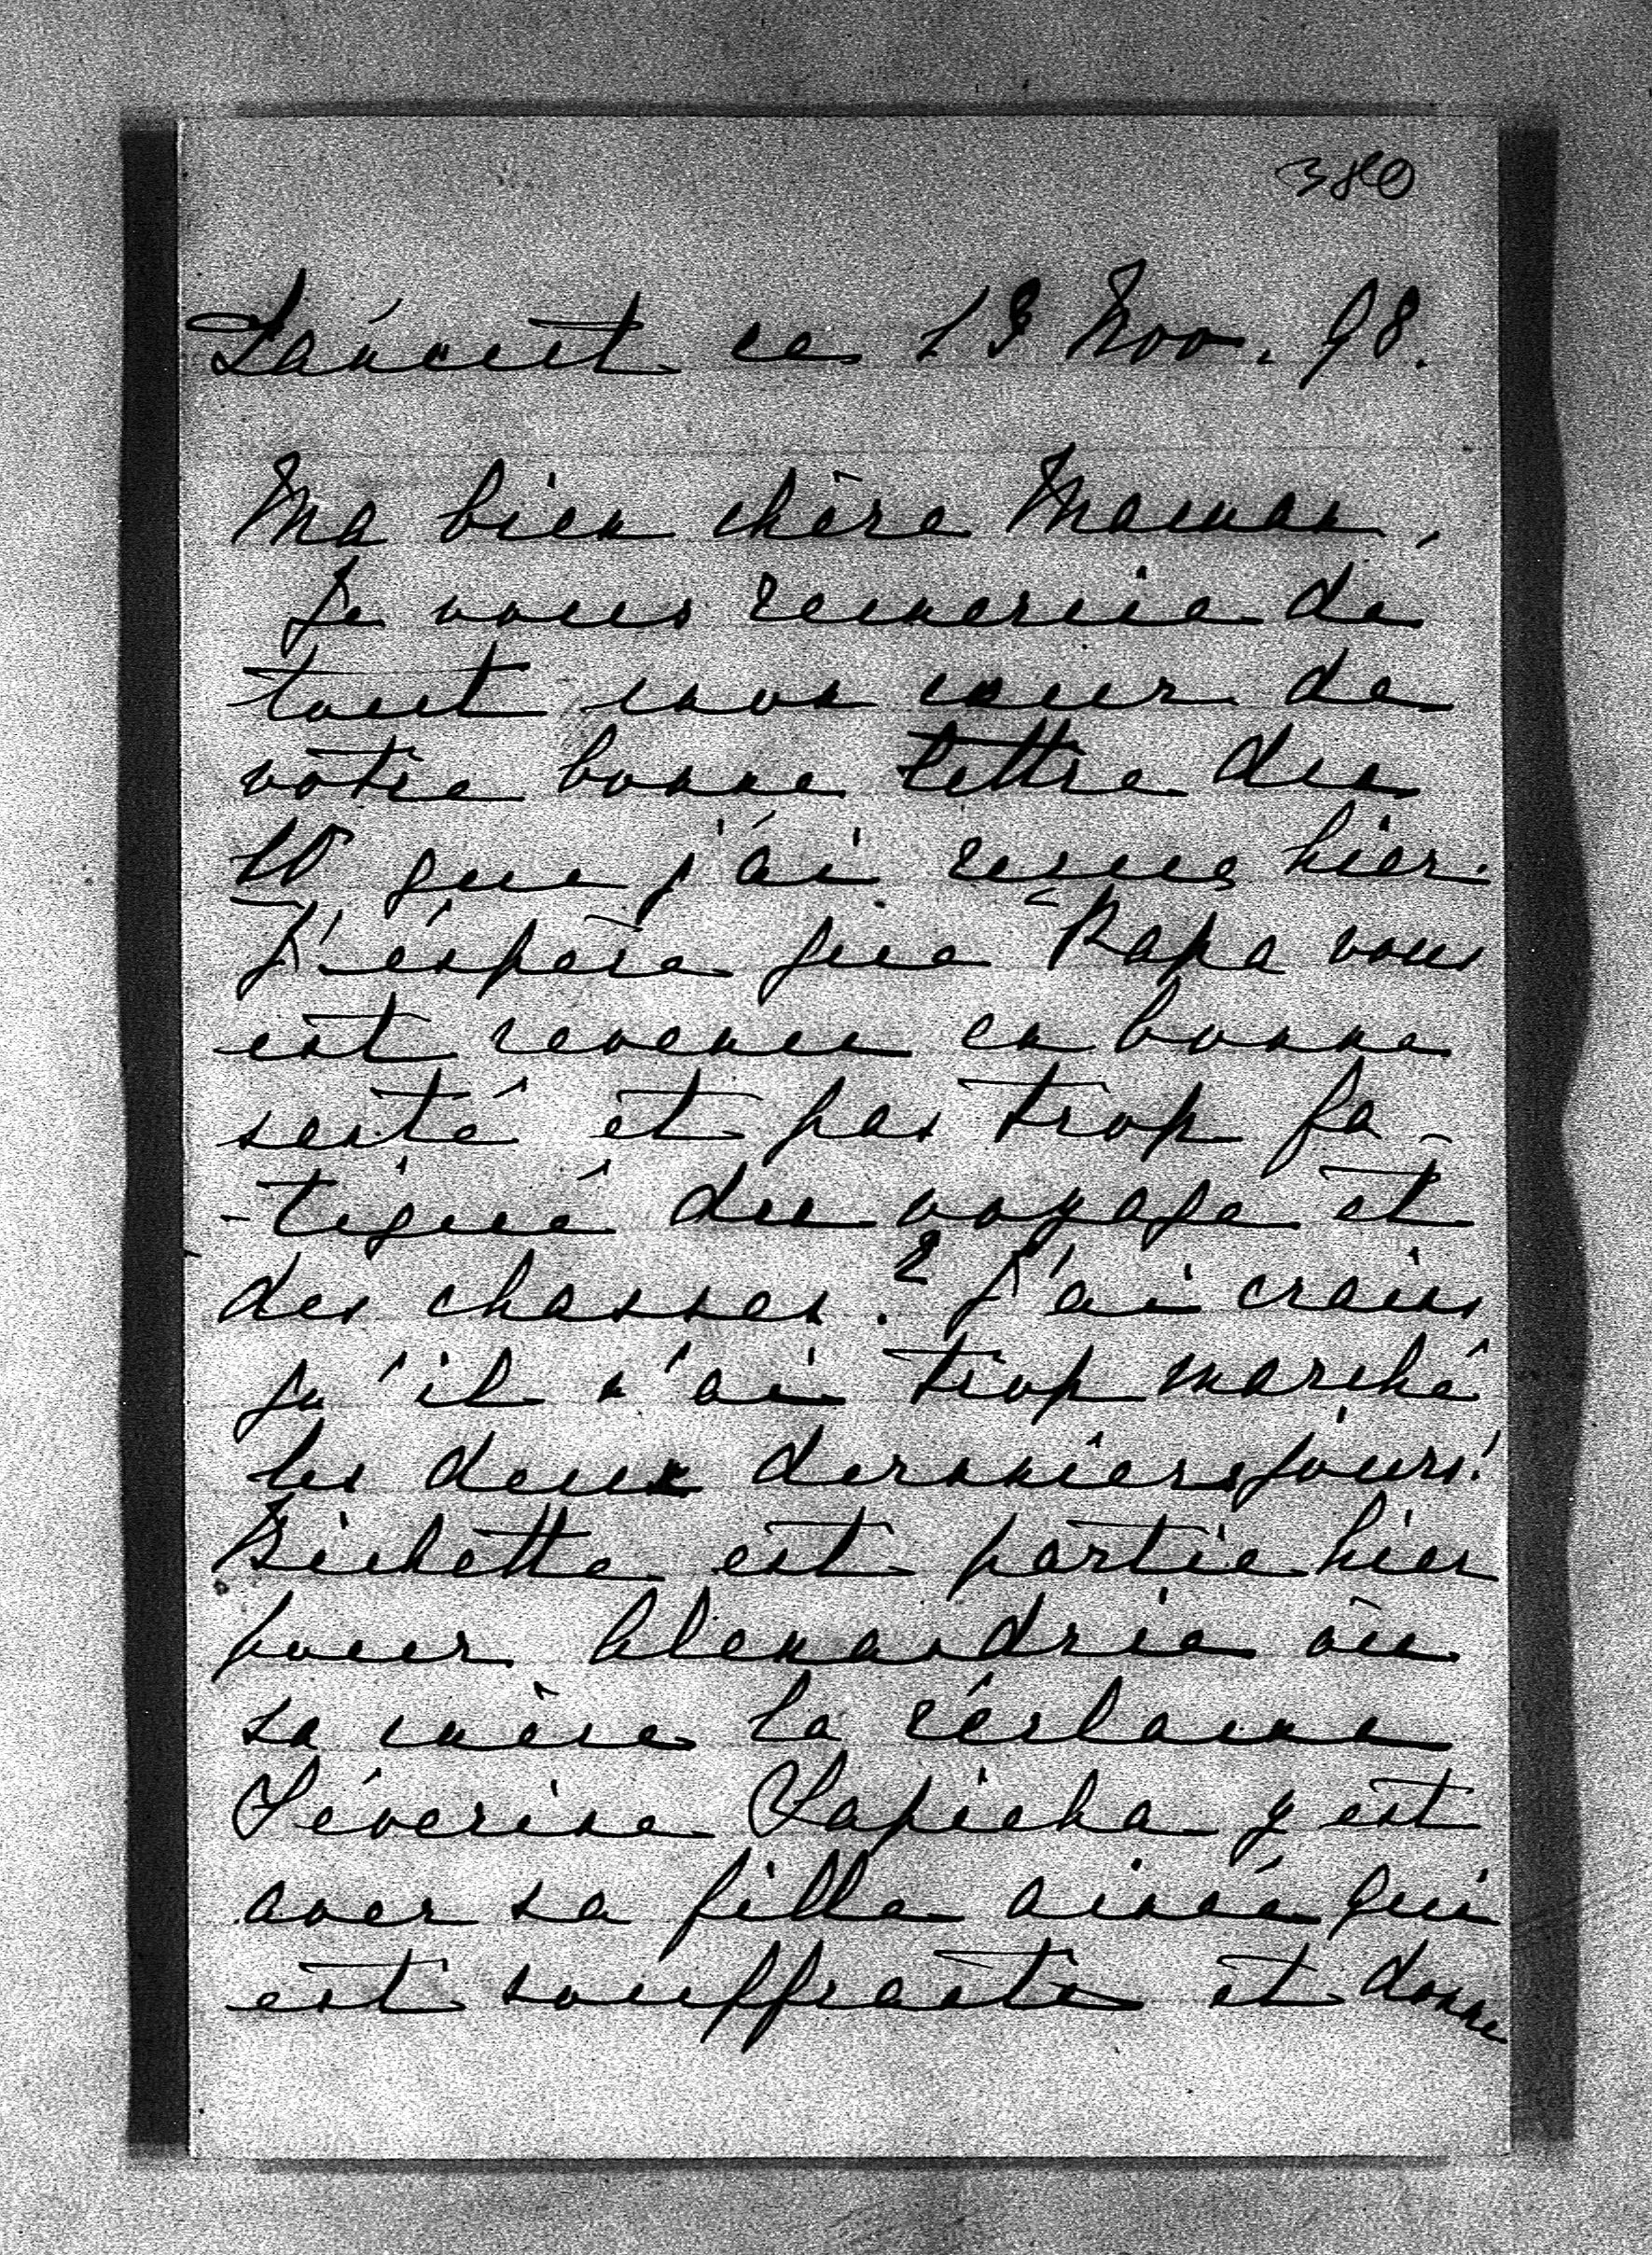 380
Łańcut ce 13 Nov. 98.
Ma bien chère Maman,
Je vous remercie de
tout mon cœur de
votre bonne lettre du
10 que j'ai reçue hier.
J'éspère que Papa vous
est revenu en bonne
santé et pas trop fa-
-tigué du voyage et
des chasses? J'ai crains
qu'il n'ai trop marché
les deux derniers jours!
Bichette est partie hier
pour Alexandrie où
sa mère la réclame
Séverine Sapieha y est
avec sa fille ainée qui
est souffrante et donne